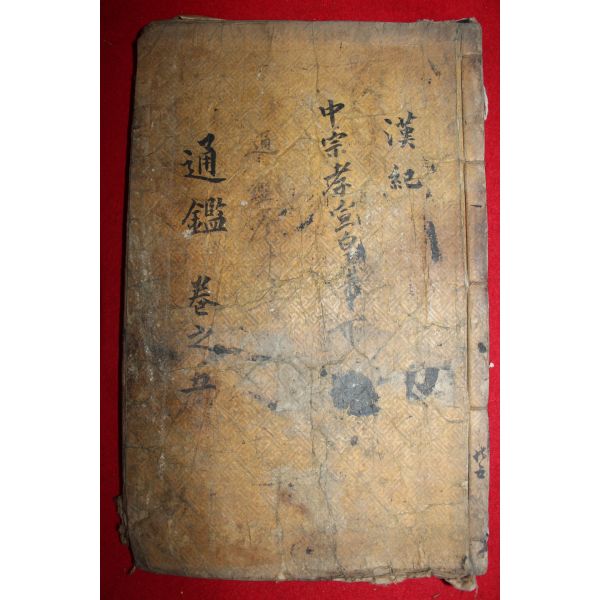 漢紀
中宗孝宣皇帝下
通鑑
通鑑 卷之五